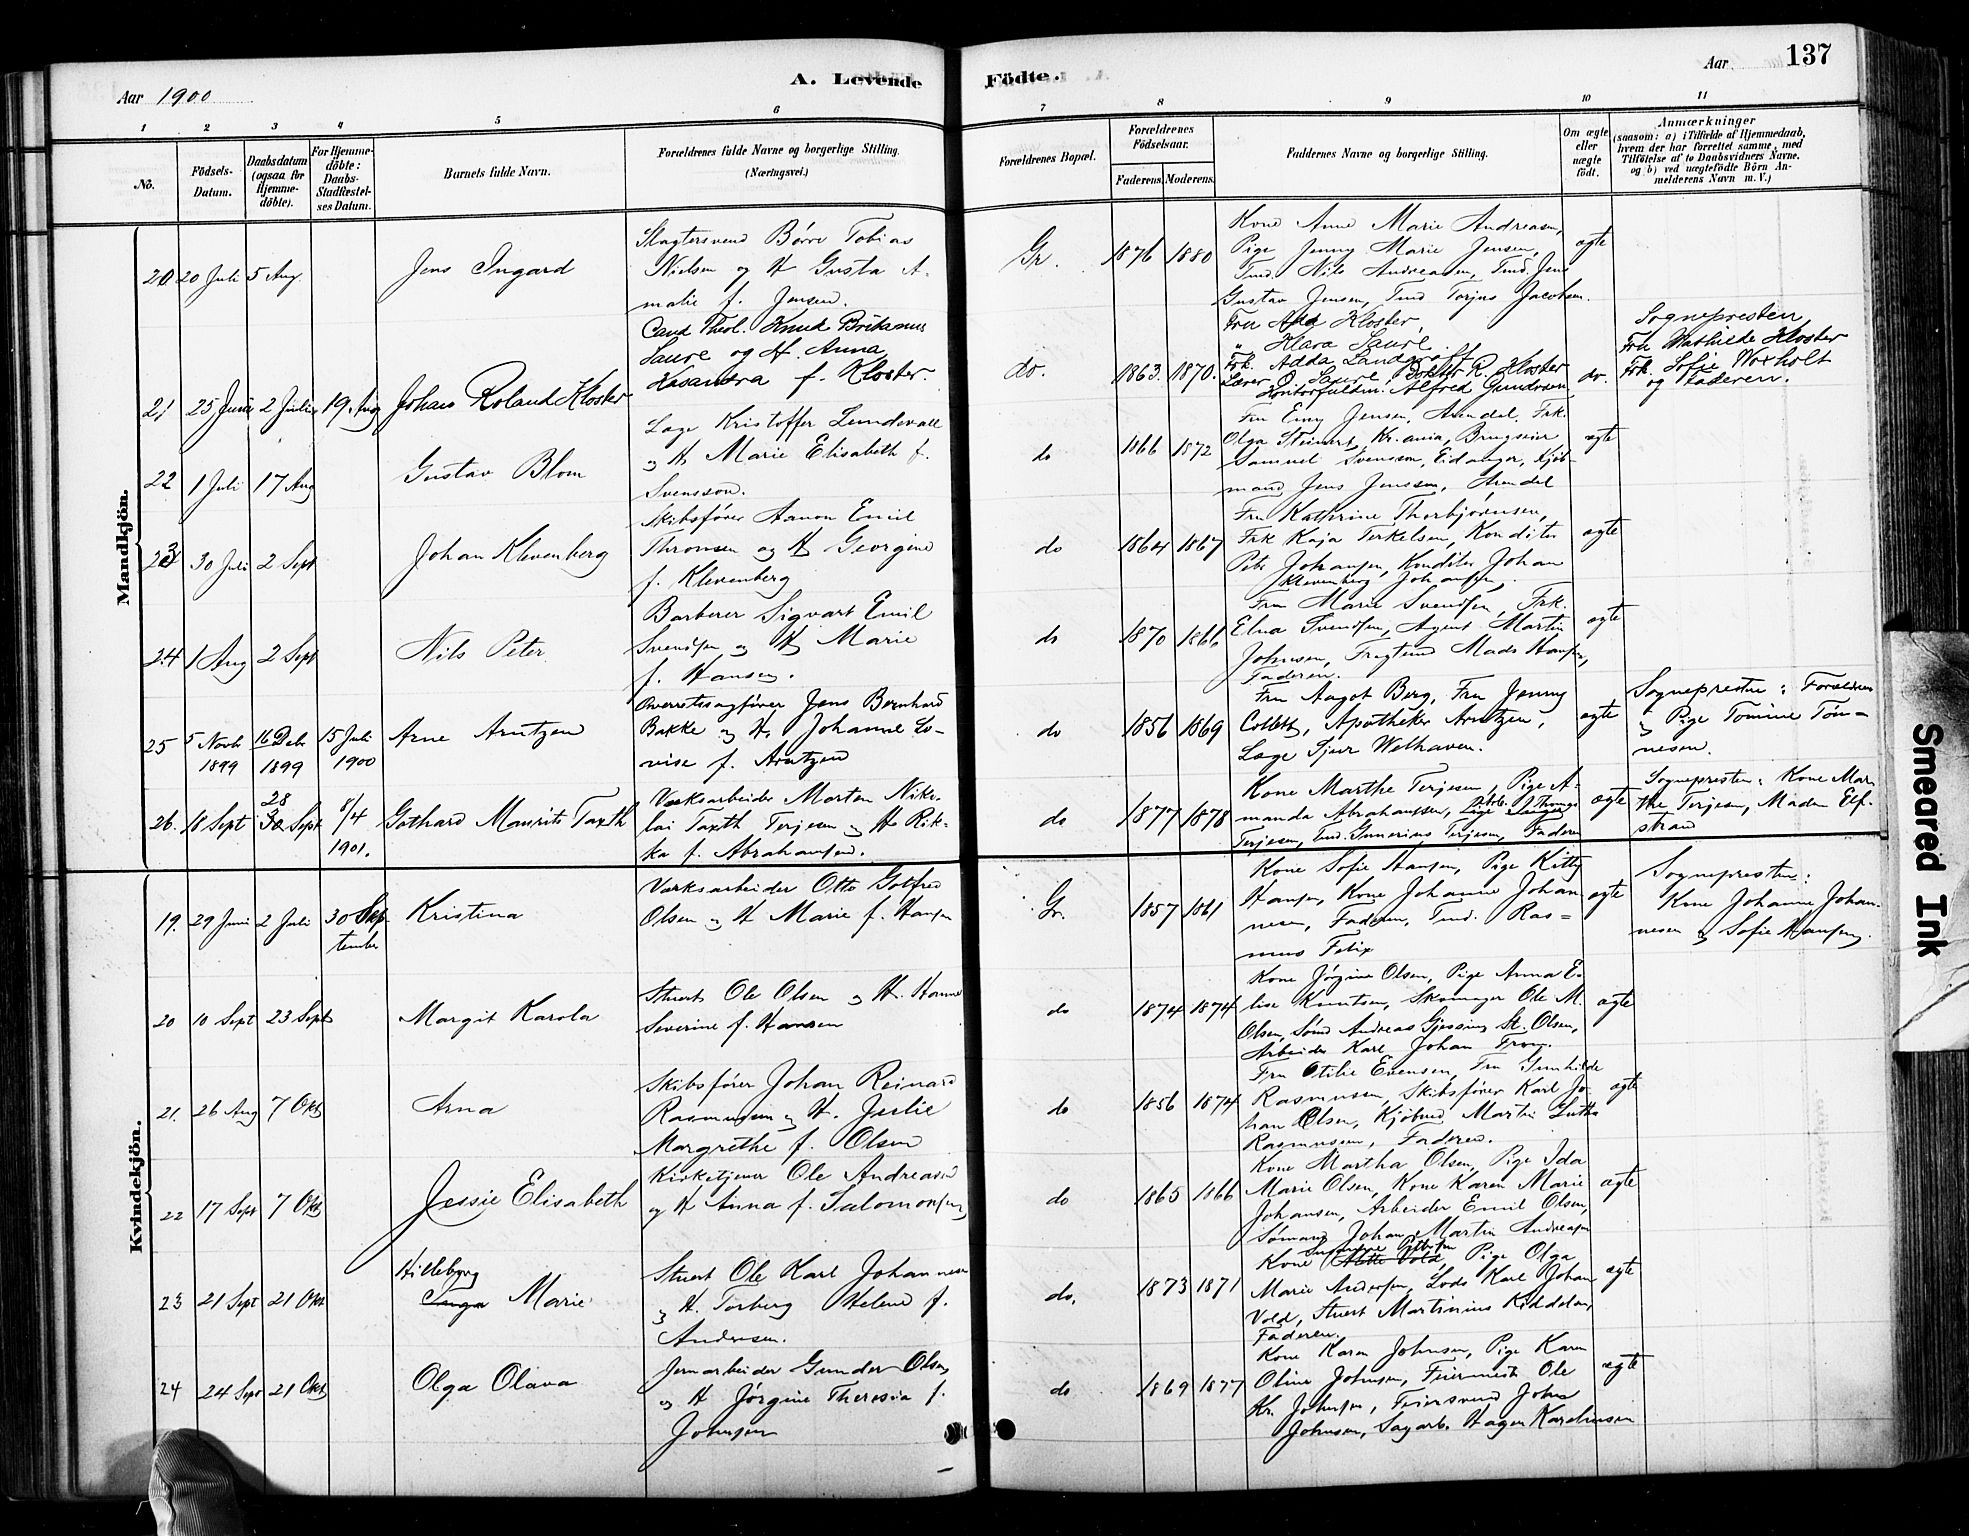 Aar 1900
A. Levende
Fødte.
Aar
137
1 2 3 4 5 6 7 8 9 10 11
No.
Fødsels-Datum.
Daabsdatum (ogsaa for Hjemme-døbte).
For Hjemme-døbte: Daabs-Stadfestel-ses Datum.
Barnets fulde Navn.
Forældrenes fulde Navne og borgerlige Stilling. (Næringsvei.)
Forældrenes Bopæl.
Forældrenes Fødselsaar.
Faderens. Moderens.
Faddernes Navne og borgerlige Stilling.
Om ægte eller uægte født.
Anmærkninger
(saasom: a) i Tilfælde af Hjemmedaab, hvem der har forrettet samme, med Tilføielse af to Daabsvidners Navne, og b) ved uægtefødte Børn An-melderens Navn m. V.)
Mandkjön.
20 20 Juli 5 Aug. Jens Ingard
Slagtersvend Børre Tobias
Nielsen og H Gusta A-
malie f. Jensen.
Gr. 1876 1880
Kone Anne Marie Andreasen,
Pige Jenny Marie Jensen,
Tmd. Nils Andreasen, Tmd. Jens
Gustav Jensen, Tmd Torjus Jacobsen.
ægte
21 25 Juni 2 Juli 19. Aug Johan Roland Kloster
Cand. Theol. Knud Britanus
Saure og H. Anna
Kasandra f. Kloster.
do. 1863. 1870.
Fru Kloster,
" Klara Saure.
Frk. Adda Landgraff
Lærer O. Saure, Doktor R. Kloster
Kontorfuldm. Alfred Gundersen
do.
Sognepresten,
Fru Mathilde Kloster
Frk. Sofie Woxholt
og Faderen.
22 1 Juli 17 Aug Gustav Blom
Læge Kristoffer Lundevall
og H. Marie Elisabeth f.
Svensson.
do 1866 1872
Fru Emy Jensen, Arendal, Frk.
Olga Steinert, Kr.ania, Brugseier
Samuel Svensson, Eidanger, Kjøb-
mand Jens Jenssen, Arendal
ægte
23 30 Juli 2 Sept Johan Klevenberg
Skibsfører Aanon Emil
Thronsen og H Georgine
f. Klevenberg
do 1864 1867
Fru Kathrine Thorbjørnsen,
Frk Kaja Terkelsen, Konditor
Peter Johansen, Konditor Johan
Klevenberg Johansen,
ægte
24 1 Aug 2 Sept Nils Peter
Barberer Sigvart Emil
Svendsen og H Marie
f. Hansen.
do 1870 1861
Fru Marie Svendsen, Frk.
Elna Svendsen, Agent Martin
Johnsen, Mads Hansen,
Faderen.
ægte
25 5 Novb 1899 16 Debr 1899 15 Juli 1900 Arne Arntzen
Overretssagfører Jens Bernhard
Bakke og H. Johanne Lo-
vise f. Arntzen
do 1856 1869
Fru Aagot Berg, Fru Jenny
Collett, Apotheker Arntzen,
Læge Sjur Welhaven.
ægte
Sognepresten: Forældrene
og Pige Tomine Tøn-
nesen.
26. 18 Sept 28 30 Sept 8/4 1901. Gothard Maurits Taxth
Værksarbeider Morten Niko-
lai Taxth Terjesen og H Rik-
ka f. Abrahamsen.
do 1877 1878
Kone Marthe Terjesen, Pige A-
manda Abrahamsen,
Terjesen, Tmd. Gunerius Terjesen, Faderen
ægte
Sognepresten: Kone Mar-
the Terjesen, Madam Elf-
strand
Kvindekjön.
19. 29 Juni 2 Juli 30 September Kristina
Værksarbeider Otto Gotfred
Olsen og H Marie f. Hansen
Gr. 1857 1861
Kone Sofie Hansen, Pige Kitty
Hansen, Kone Johanne Johan-
nesen, Faderen, Tmd. Ras=
mus Felix
ægte
Sognepresten:
Kone Johanne Johan-
nesen og Sofie Hansen.
20 10 Sept 23 Sept Margit Karola
Stuert Ole Olsen og H. Hanne
Severine f. Hansen
do 1874 1874
Kone Jørgine Olsen, Pige Anna E-
lise Knutsen, Skomager Ole M.
Olsen, Sømd Andreas Gjessing St. Olsen,
Arbeider Karl Johan
ægte
21. 26 Aug 7 Okt Arna
Skibsfører Johan Reinard
Rasmussen og H. Jeslie
Margrethe f. Olsen
do 1856 1874
Fru Otilie Evensen, Fru Gunhilde
Rasmussen, Skibsfører Karl Jo-
han Olsen, Kjøbmd Martin Luther
Rasmussen, Faderen.
ægte
22 17 Sept 7 Okt Jessie Elisabeth
Kirketjener Ole Andreasen
og H Anna f. Salomonsen
do 1865 1866
Kone Martha Olsen, Pige Ida
Marie Olsen, Kone Karen Marie
Johansen, Arbeider Emil Olsen,
Sømand Johan Martin Andreasen
ægte
23 21 Sept 21 Okt Hilleborg Inga Marie
Stuert Ole Karl Johannesen
og H. Torberg Helene f.
Andresen.
do. 1873 1871
Kone Vold, Pige Olga
Marie Andersen, Lods Karl Johan
Vold, Stuert Martinius Kiddelsen,
Faderen.
ægte
24 24 Sept 21 Okt Olga Olava
Jernarbeider Gunder Olsen,
og H Jørgine Theresia f.
Johnsen
do 1869 1877
Kone Karen Johnsen, Pige Karen
Oline Johnsen, Feiermester Ole
Kr. Johnsen, Feiersvend John
Johnsen, Sagarb. Hagen Karelniusen
ægte
Smeared Ink